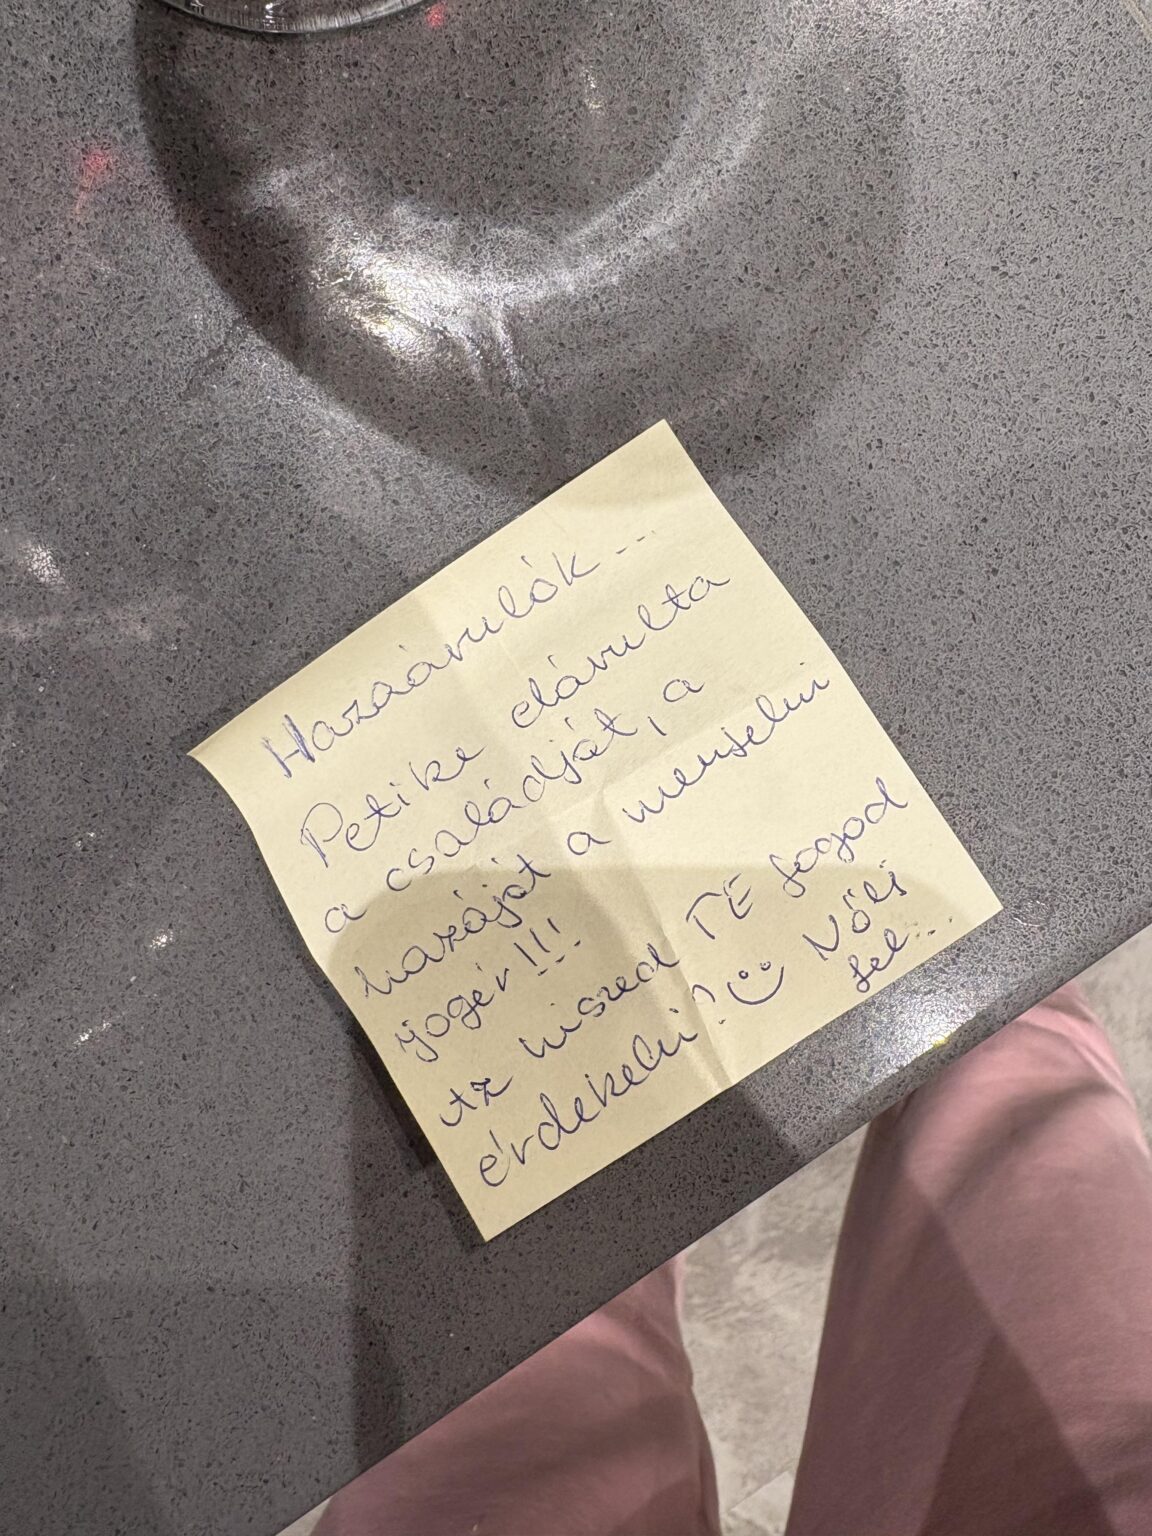 Hazaárulók...
Petike elárulta
a családját, a
hazáját a menjelni
jogér!!!
Az hiszed TE fogod
érdekelni? :) Nőlj
fel...